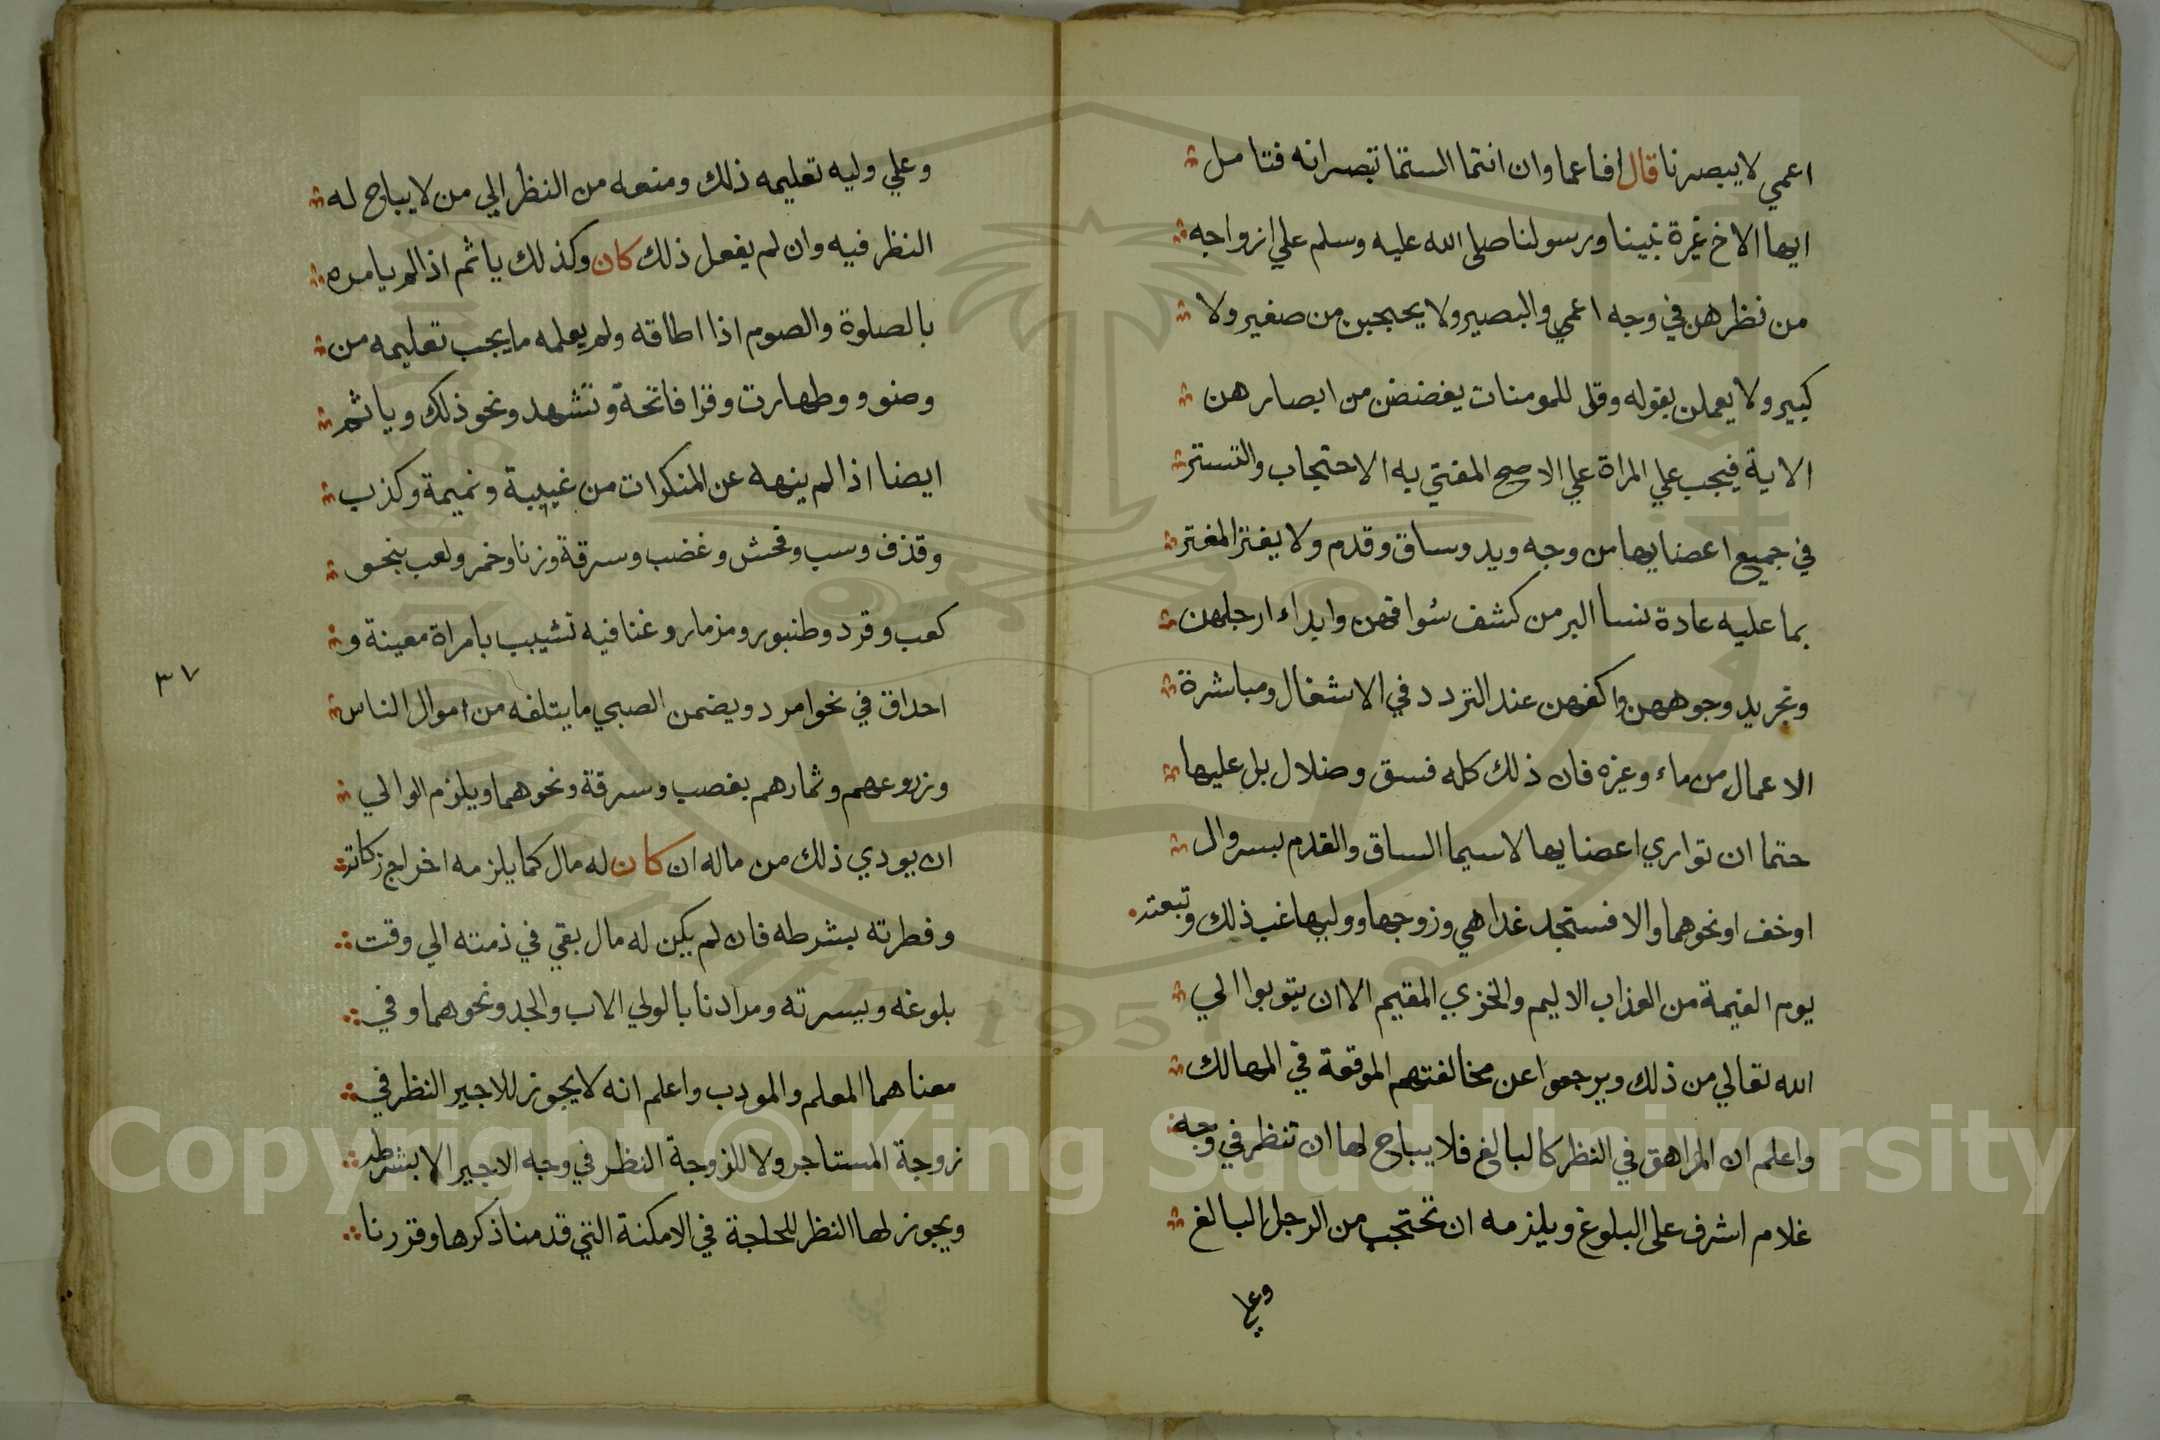 اعمي لا يبصرنا قال افاعما وان انتما الستما تبصرانه فتامل
ايها الاخ غيرة نبينا ورسولنا صلى الله عليه وسلم علي ازواجه
من نظرهن في وجه اعمي والبصير ولا يحجبن من صغير ولا
كبير ولا يعملن بقوله وقل للمومنات يغضضن من ابصارهن
الاية فيجب علي المراة علي الاصح المفتي به الاحتجاب والتستر
في جميع اعضايها من وجه ويد وساق وقدم ولا يغتر المغتر
بما عليه عادة نسا البر من كشف سواقهن وابداء ارجلهن
وتجريد وجوههن واكفهن عند التردد في الاشغال ومباشرة
الاعمال من ماء وغيره فان ذلك كله فسق وضلال بل عليها
حتما ان تواري اعضايها لاسيما الساق والقدم بسروال
اوخف اونحوهما والا فستجد غدا هي وزوجها ووليها غب ذلك وتبعته
يوم القيمة من العذاب الاليم والخزي المقيم الا ان يتوبوا الي
الله تعالي من ذلك ويرجعوا عن مخالفتهم الموقعة في المهالك
واعلم ان المراهق في النظر كالبالغ فلا يباح لها ان تنظر في وجه
غلام اشرف على البلوغ ويلزمه ان تحتجب من الرجل البالغ
وعلي
وعلي وليه تعليمه ذلك ومنعه من النظر الي من لا يباح له
النظر فيه وان لم يفعل ذلك كان وكذلك ياثم اذا لم يامره
بالصلوة والصوم اذا اطاقه ولم يعلمه ما يجب تعليمه من
وضوء وطهارت وقرا فاتحة وتشهد ونحو ذلك وياثم
ايضا اذا لم ينهه عن المنكرات من غيبة ونميمة وكذب
وقذف وسب وفحش وغضب وسرقة وزنا وخمر ولعب بنحو
كعب وقرد وطنبور ومزمار وغنا فيه تشبيب بامراة معينة و
احداق في نحو امرد ويضمن الصبي ما يتلفه من اموال الناس
وزروعهم وثمارهم بغصب وسرقة ونحوهما ويلزم الوالي
ان يودي ذلك من ماله ان كان له مال كما يلزمه اخراج زكاته
وفطرته بشرطه فان لم يكن له مال بقي في ذمته الي وقت
بلوغه ويسرته ومرادنا بالولي الاب والجد ونحوهما وفي
معناهما المعلم والمودب واعلم انه لا يجوز للاجير النظر في
زوجة المستاجر ولا للزوجة النظر في وجه الاجير الا بشرطه
ويجوز لها النظر للحاجة في الامكنة التي قدمنا ذكرها وقررنا
٣٧
Copyright © King Saud University
1957